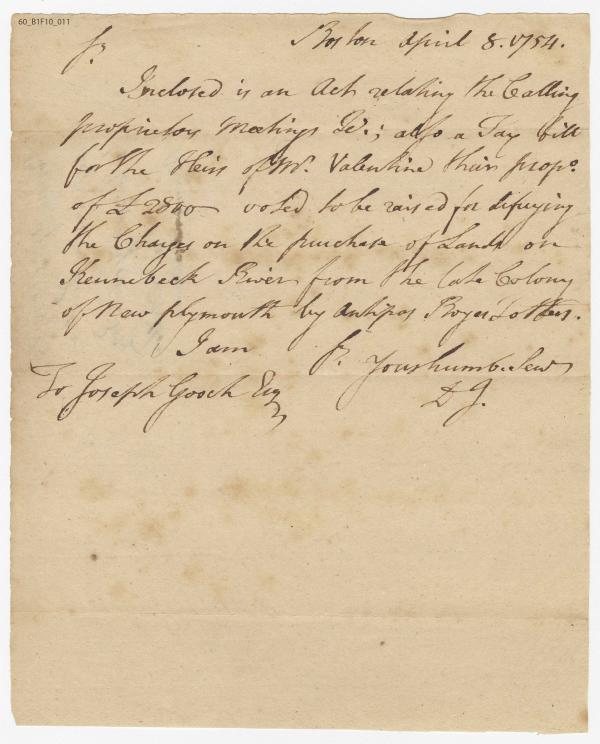 60_B1F10_011
Boston April 8. 1754.
Sr.
Inclosed is an Act relating the Calling
proprietors Meetings &c.; also a Tax bill
for the Heirs of Mr. Valentine their propo.
of £2800 voted to be raised for difraying
the Charges on the purchase of Lands on
Kennebeck River from the late Colony
of New plymouth by Antipas Boyes & others.
I am Sr. Your humbe. Serv
To Joseph Gooch Esq D J.